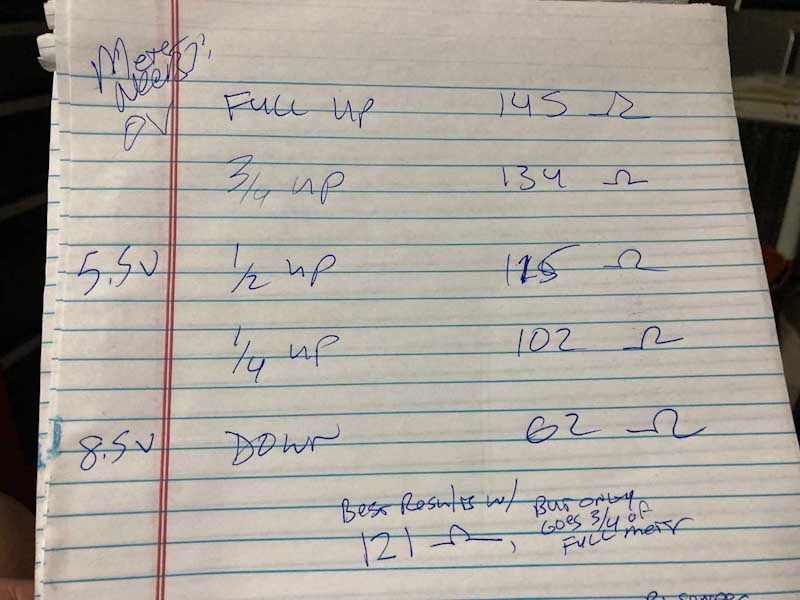 Meter
Needs:
0V FULL UP 145 Ω
3/4 UP 134 Ω
5.5V 1/2 UP 115 Ω
1/4 UP 102 Ω
8.5V DOWN 62 Ω
Best Results w/
121 Ω,
But only
Goes 3/4 of
Full metr